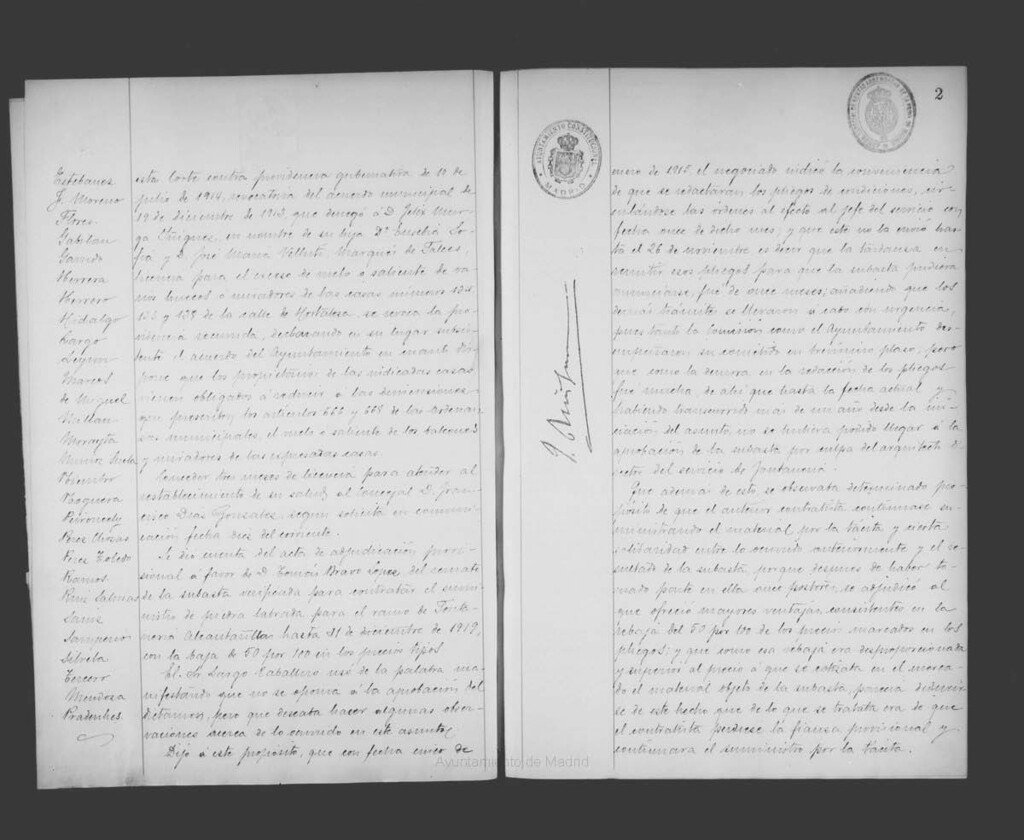 Estebanez
G. Moreno
Flores
Gabilan
Garrido
Herrera
Herrero
Hidalgo
Largo
Marcos
de Miguel
Millan
Morayta
Noguera
Perez Toledo
Ramos
Ruiz Salinas
Sanz
Sampero
Silvela
Tercero
Mendoza
esta Corte contra providencia gubernativa de 11 de
julio de 1914, revocatoria del acuerdo municipal de
19 de diciembre de 1913, que denegó á D. Felix Mur-
ga Yñiguez, en nombre de su hija Dª Eusebia
y D. José Maria Velluti, Marqués de Falces,
licencia para el exceso de vuelo ó saliente de va-
rios huecos ó miradores de las casas números 134
136 y 138 de la calle de Hortaleza, se revoca la pro-
videncia recurrida, declarando en su lugar subsis-
tente el acuerdo del Ayuntamiento en cuanto dis-
pone que los propietarios de las indicadas casas
vienen obligados á reducir á las dimensiones
que prescriben los articulos 666 y 668 de las Ordenan-
zas municipales, el vuelo ó saliente de los balcones
y miradores de las expresadas casas.
Conceder tres meses de licencia para atender al
restablecimiento de su salud, al Concejal D. Fran-
cisco Diaz Gonzalez, segun solicita en comuni-
cación fecha diez del corriente.
Se dió cuenta del acta de adjudicación provi-
sional á favor de D. Tomás Bravo López, del remate
de la subasta verificada para contratar el sumi-
nistro de piedra labrada para el ramo de Fonta-
neria Alcantarillas hasta 31 de diciembre de 1919,
con la baja de 50 por 100 en los precios tipos.
El Sr. Largo Caballero usó de la palabra ma-
nifestando que no se oponia á la aprobación del
dictamen, pero que deseaba hacer algunas obser-
vaciones acerca de lo ocurrido en este asunto.
Dijo á este propósito, que con fecha cinco de
AYUNTAMIENTO CONSTITUCIONAL
MADRID
2
enero de 1915, el negociado indicó la conveniencia
de que se redactaran los pliegos de condiciones, cir-
culándose las órdenes al efecto al jefe del servicio con
fecha once de dicho mes; y que éste no la envió has-
ta el 26 de noviembre, es decir que la tardanza en
remitir esos pliegos para que la subasta pudiera
anunciarse, fué de once meses; añadiendo que los
demás trámites se llevaron á cabo con urgencia,
pues tanto la Comisión como el Ayuntamiento des-
empeñaron su cometido en brevísimo plazo; pero
que como la demora en la redacción de los pliegos
fué mucha, de ahí que hasta la fecha actual y
habiendo transcurrido más de un año desde la ini-
ciación del asunto, no se hubiera podido llegar á la
aprobación de la subasta por culpa del arquitecto di-
rector del servicio de Fontaneria.
Que además de esto, se observaba determinado pro-
pósito de que el anterior contratista continuase su-
ministrando el material por la tácita y cierta
solidaridad entre lo ocurrido anteriormente y el re-
sultado de la subasta, porque después de haber to-
mado parte en ella once postores, se adjudicó al
que ofreció mayores ventajas, consistentes en la
rebaja del 50 por 100 de los precios marcados en los
pliegos; y que como esa rebaja era desproporcionada
y superior al precio á que se cotizaba en el merca-
do el material objeto de la subasta, parecia deducir-
se de este hecho que de lo que se trataba era de que
el contratista perdiese la fianza provisional y
continuara el suministro por la tácita.
Ayuntamiento de Madrid